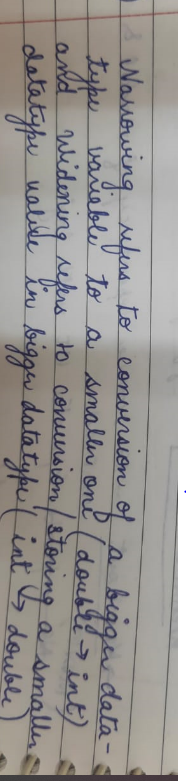 Narrowing refers to conversion of a bigger data-
type variable to a smaller one (double → int)
and widening refers to conversion/storing a smaller
datatype value in bigger datatype (int → double)